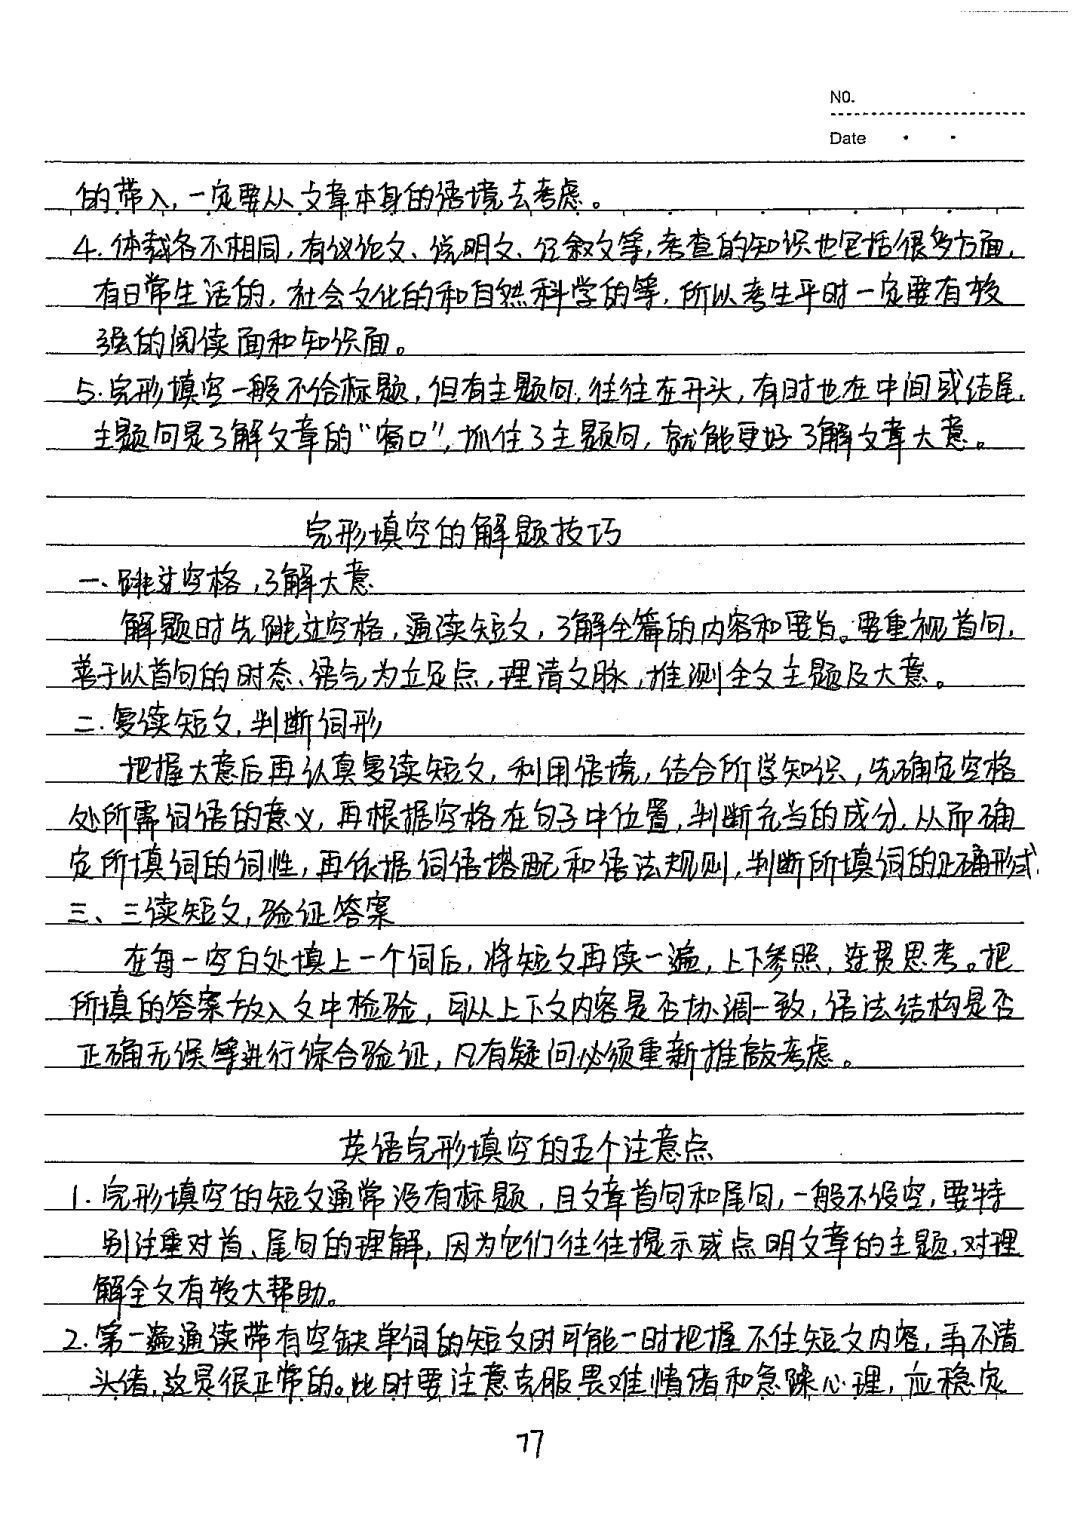 NO.
Date
的带入，一定要从文章本身的语境去考虑。
4. 体裁各不相同，有议论文、说明文、记叙文等，考查的知识也包括很多方面，
有日常生活的，社会文化的和自然科学的等，所以考生平时一定要有较
强的阅读面和知识面。
5. 完形填空一般不给标题，但有主题句，往往在开头，有时也在中间或结尾，
主题句是了解文章的“窗口”，抓住了主题句，就能更好了解文章大意。
完形填空的解题技巧
一、跳过空格，了解大意
解题时先跳过空格，通读短文，了解全篇的内容和要旨。要重视首句，
善于以首句的时态、语气为立足点，理清文脉，推测全文主题及大意。
二.复读短文，判断词形
把握大意后再认真复读短文，利用语境，结合所学知识，先确定空格
处所需词语的意义，再根据空格在句子中位置，判断充当的成分，从而确
定所填词的词性，再依据词语搭配和语法规则，判断所填词的正确形式．
三、三读短文，验证答案
在每一空白处填上一个词后，将短文再读一遍，上下参照，连贯思考。把
所填的答案放入文中检验，可从上下文内容是否协调一致，语法结构是否
正确无误等进行综合验证，凡有疑问必须重新推敲考虑。
英语完形填空的五个注意点
1. 完形填空的短文通常没有标题，且文章首句和尾句，一般不设空，要特
别注重对首、尾句的理解，因为它们往往提示或点明文章的主题，对理
解全文有较大帮助。
2. 第一遍通读带有空缺单词的短文时可能一时把握不住短文内容，弄不清
头绪，这是很正常的。此时要注意克服畏难情绪和急躁心理，应稳定
77